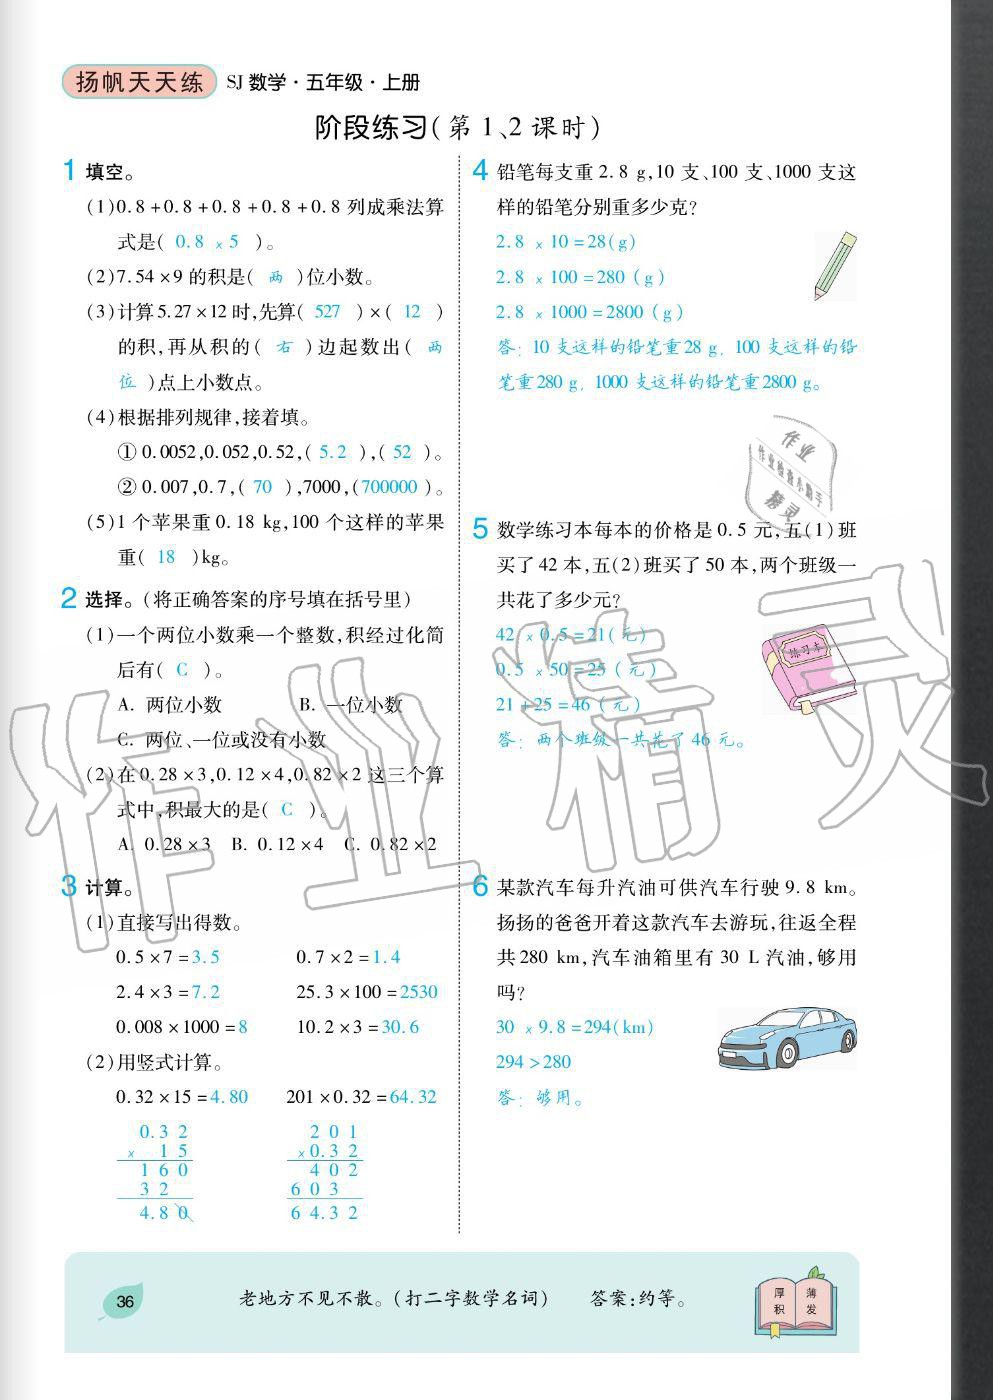 扬帆天天练 SJ 数学·五年级·上册
阶段练习(第1、2课时)
1 填空。
(1)0.8+0.8+0.8+0.8+0.8列成乘法算
式是( 0.8 × 5 )。
(2)7.54×9的积是( 两 )位小数。
(3)计算5.27×12时,先算( 527 )×( 12 )
的积,再从积的( 右 )边起数出( 两
位 )点上小数点。
(4)根据排列规律,接着填。
①0.0052,0.052,0.52,( 5.2 ),( 52 )。
②0.007,0.7,( 70 ),7000,(700000)。
(5)1个苹果重0.18 kg,100个这样的苹果
重( 18 )kg。
2 选择。(将正确答案的序号填在括号里)
(1)一个两位小数乘一个整数,积经过化简
后有( C )。
A. 两位小数 B. 一位小数
C. 两位、一位或没有小数
(2)在0.28×3,0.12×4,0.82×2这三个算
式中,积最大的是( C )。
A. 0.28×3 B. 0.12×4 C. 0.82×2
3 计算。
(1)直接写出得数。
0.5×7=3.5 0.7×2=1.4
2.4×3=7.2 25.3×100=2530
0.008×1000=8 10.2×3=30.6
(2)用竖式计算。
0.32×15=4.80 201×0.32=64.32
0.3 2 2 0 1
× 1 5 ×0.3 2
1 6 0 4 0 2
3 2 6 0 3
4.8 0 6 4.3 2
4 铅笔每支重2.8 g,10支、100支、1000支这
样的铅笔分别重多少克?
2.8 × 10=28(g)
2.8 × 100=280(g)
2.8 × 1000=2800(g)
答:10支这样的铅笔重28 g,100支这样的铅
笔重280 g,1000支这样的铅笔重2800 g。
作业
作业检查小助手
精灵
5 数学练习本每本的价格是0.5元,五(1)班
买了42本,五(2)班买了50本,两个班级一
共花了多少元?
42 × 0.5=21(元)
0.5 × 50=25(元)
21+25=46(元)
答:两个班级一共花了46元。
练习本
6 某款汽车每升汽油可供汽车行驶9.8 km。
扬扬的爸爸开着这款汽车去游玩,往返全程
共280 km,汽车油箱里有30 L汽油,够用
吗?
30 × 9.8=294(km)
294>280
答:够用。
作业精灵
36
老地方不见不散。(打二字数学名词) 答案:约等。
厚积 薄发